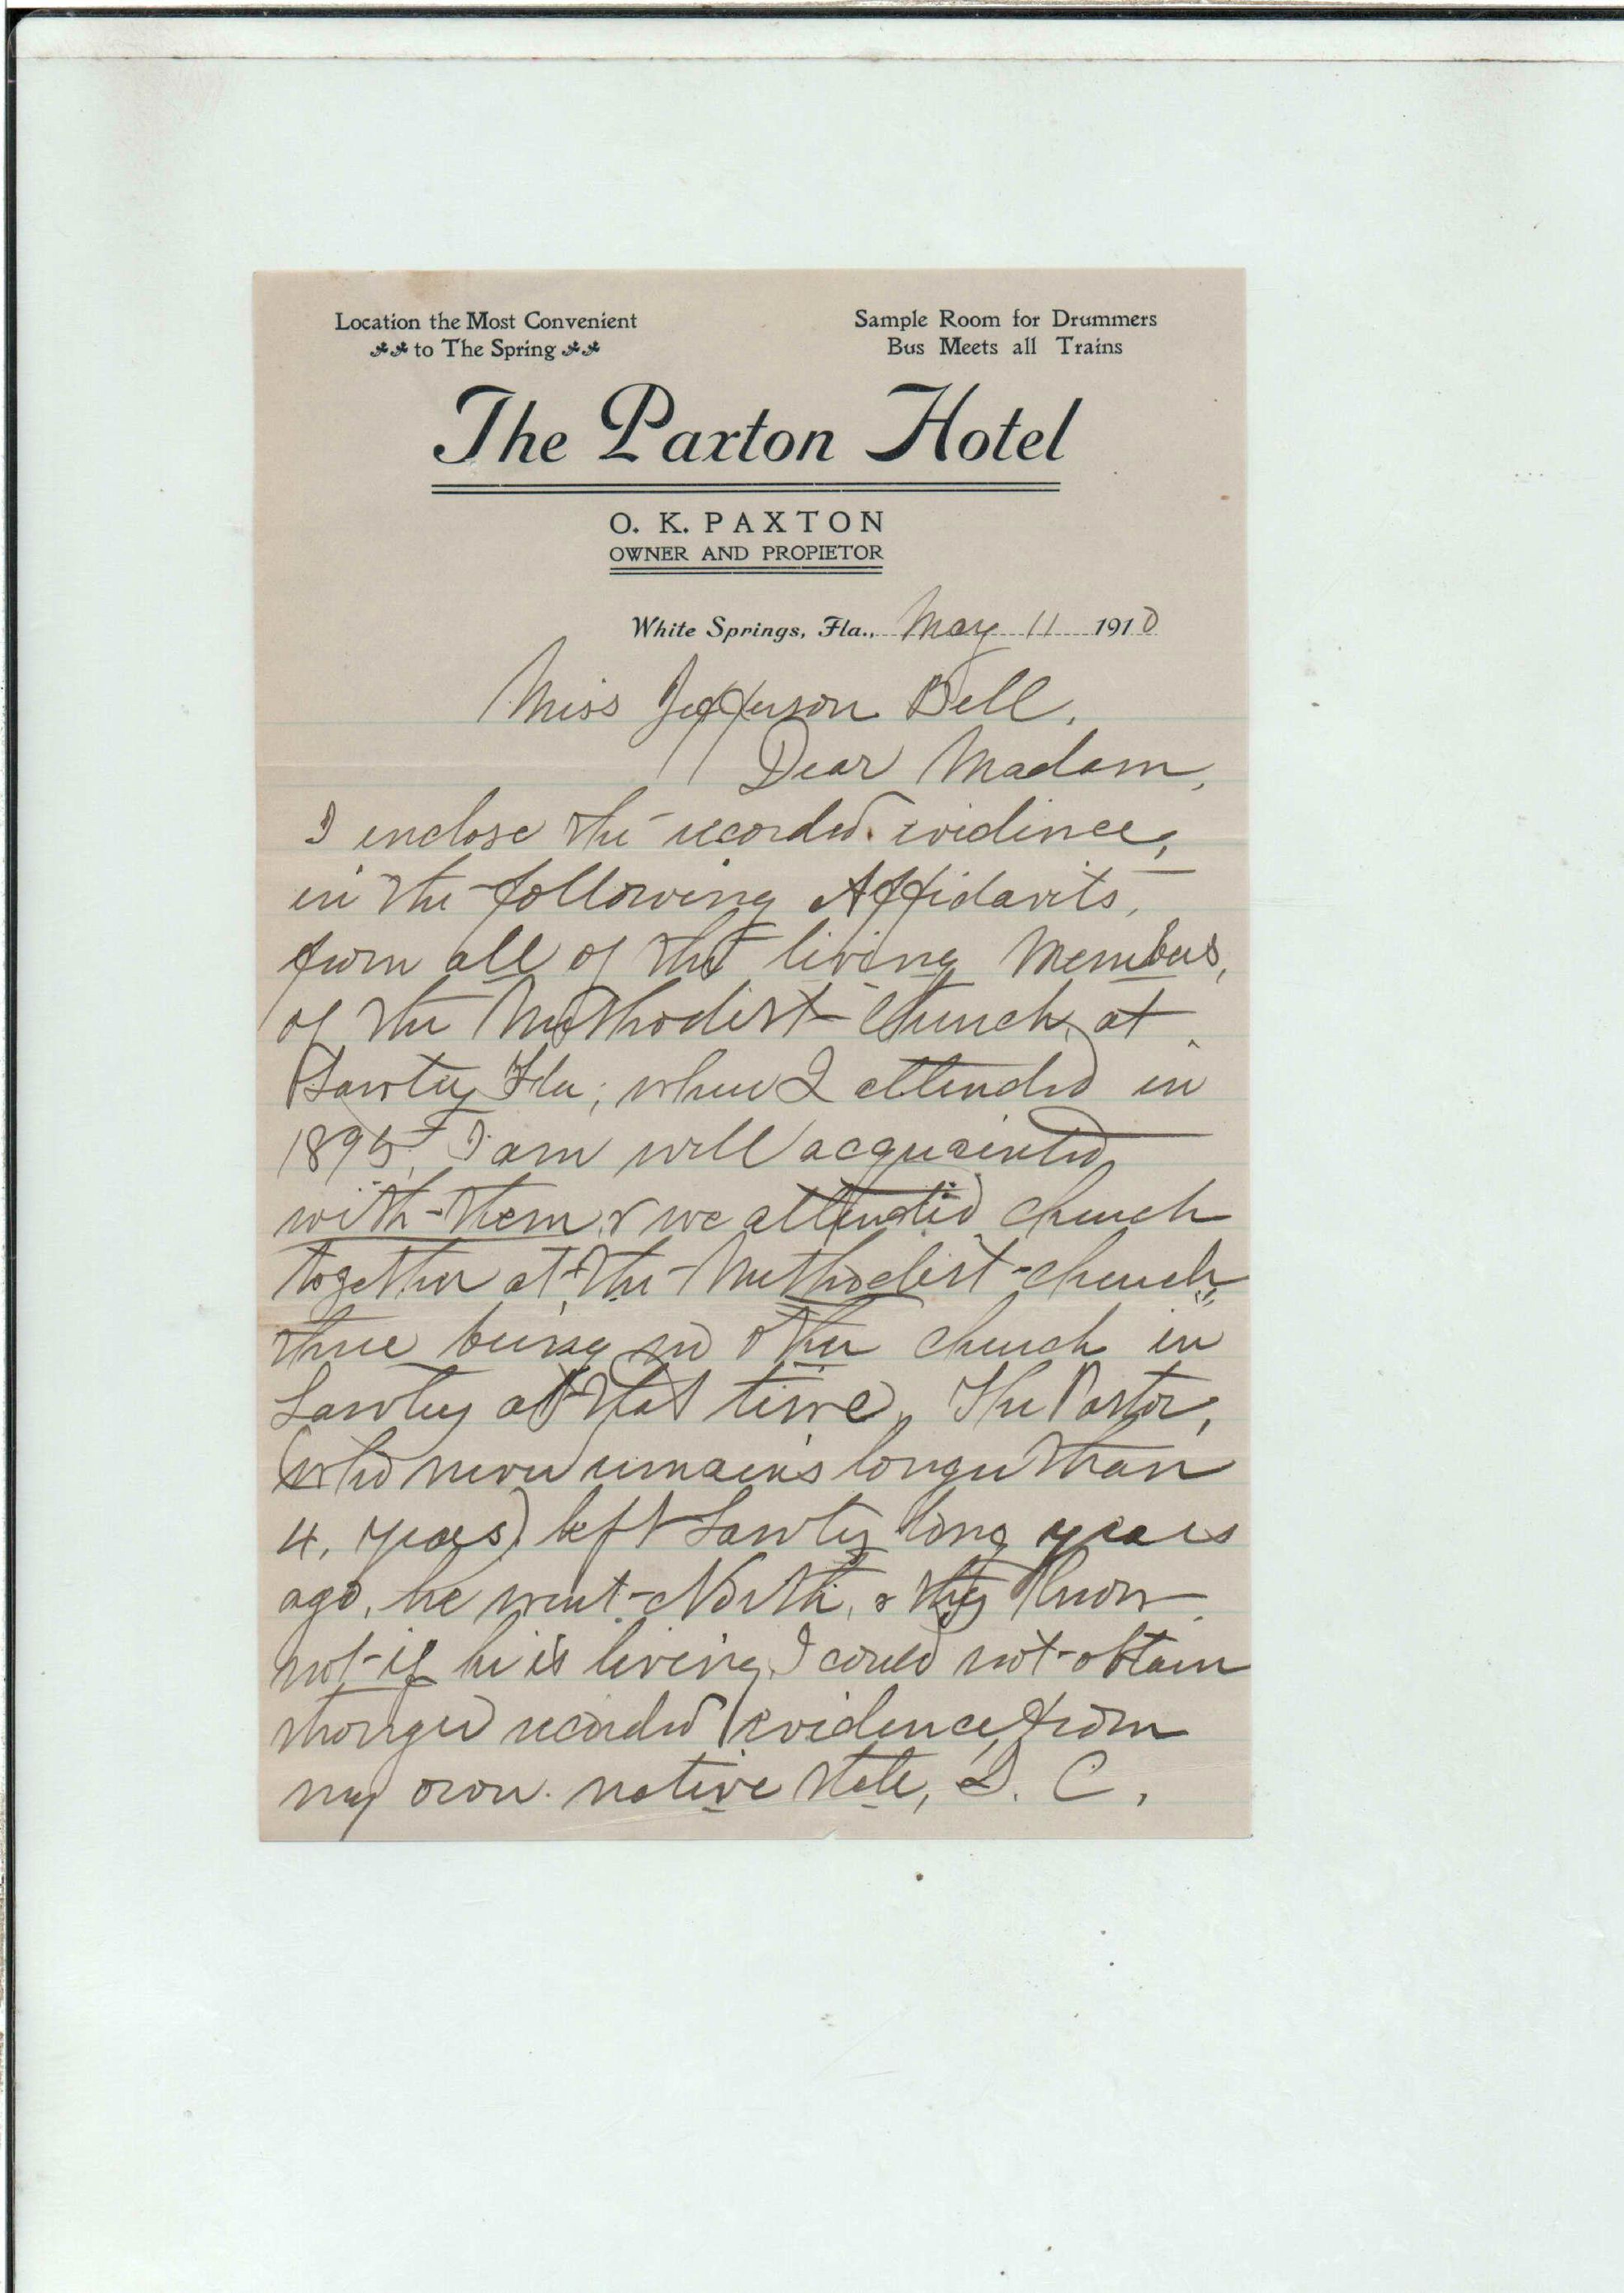 Location the Most Convenient
to The Spring
Sample Room for Drummers
Bus Meets all Trains
The Paxton Hotel
O. K. PAXTON
OWNER AND PROPIETOR
White Springs, Fla., May 11 1910
Miss Jefferson Bell,
Dear Madam,
I enclose the recorded evidence,
in the following Affidavits,
from all of the living Members,
of the Methodist Church, at
Lawtey Fla; when I attended in
1895, I am well acquainted
with them & we attended church
together at the Methodist church,
there being no other church in
Lawtey at that time. The Pastor,
(who never remains longer than
4, years) left Lawtey long years
ago, he went North, & they know
not if he is living, I could not obtain
stronger recorded evidence, from
my own native state, S. C,